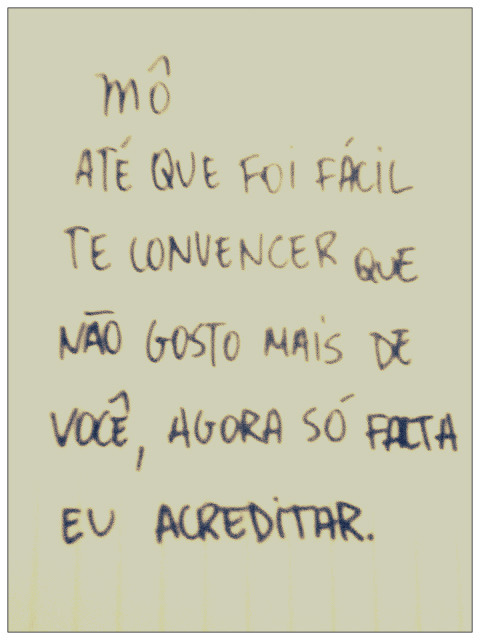 mô
ATÉ QUE FOI FÁCIL
TE CONVENCER QUE
NÃO GOSTO MAIS DE
VOCÊ, AGORA SÓ FALTA
EU ACREDITAR.